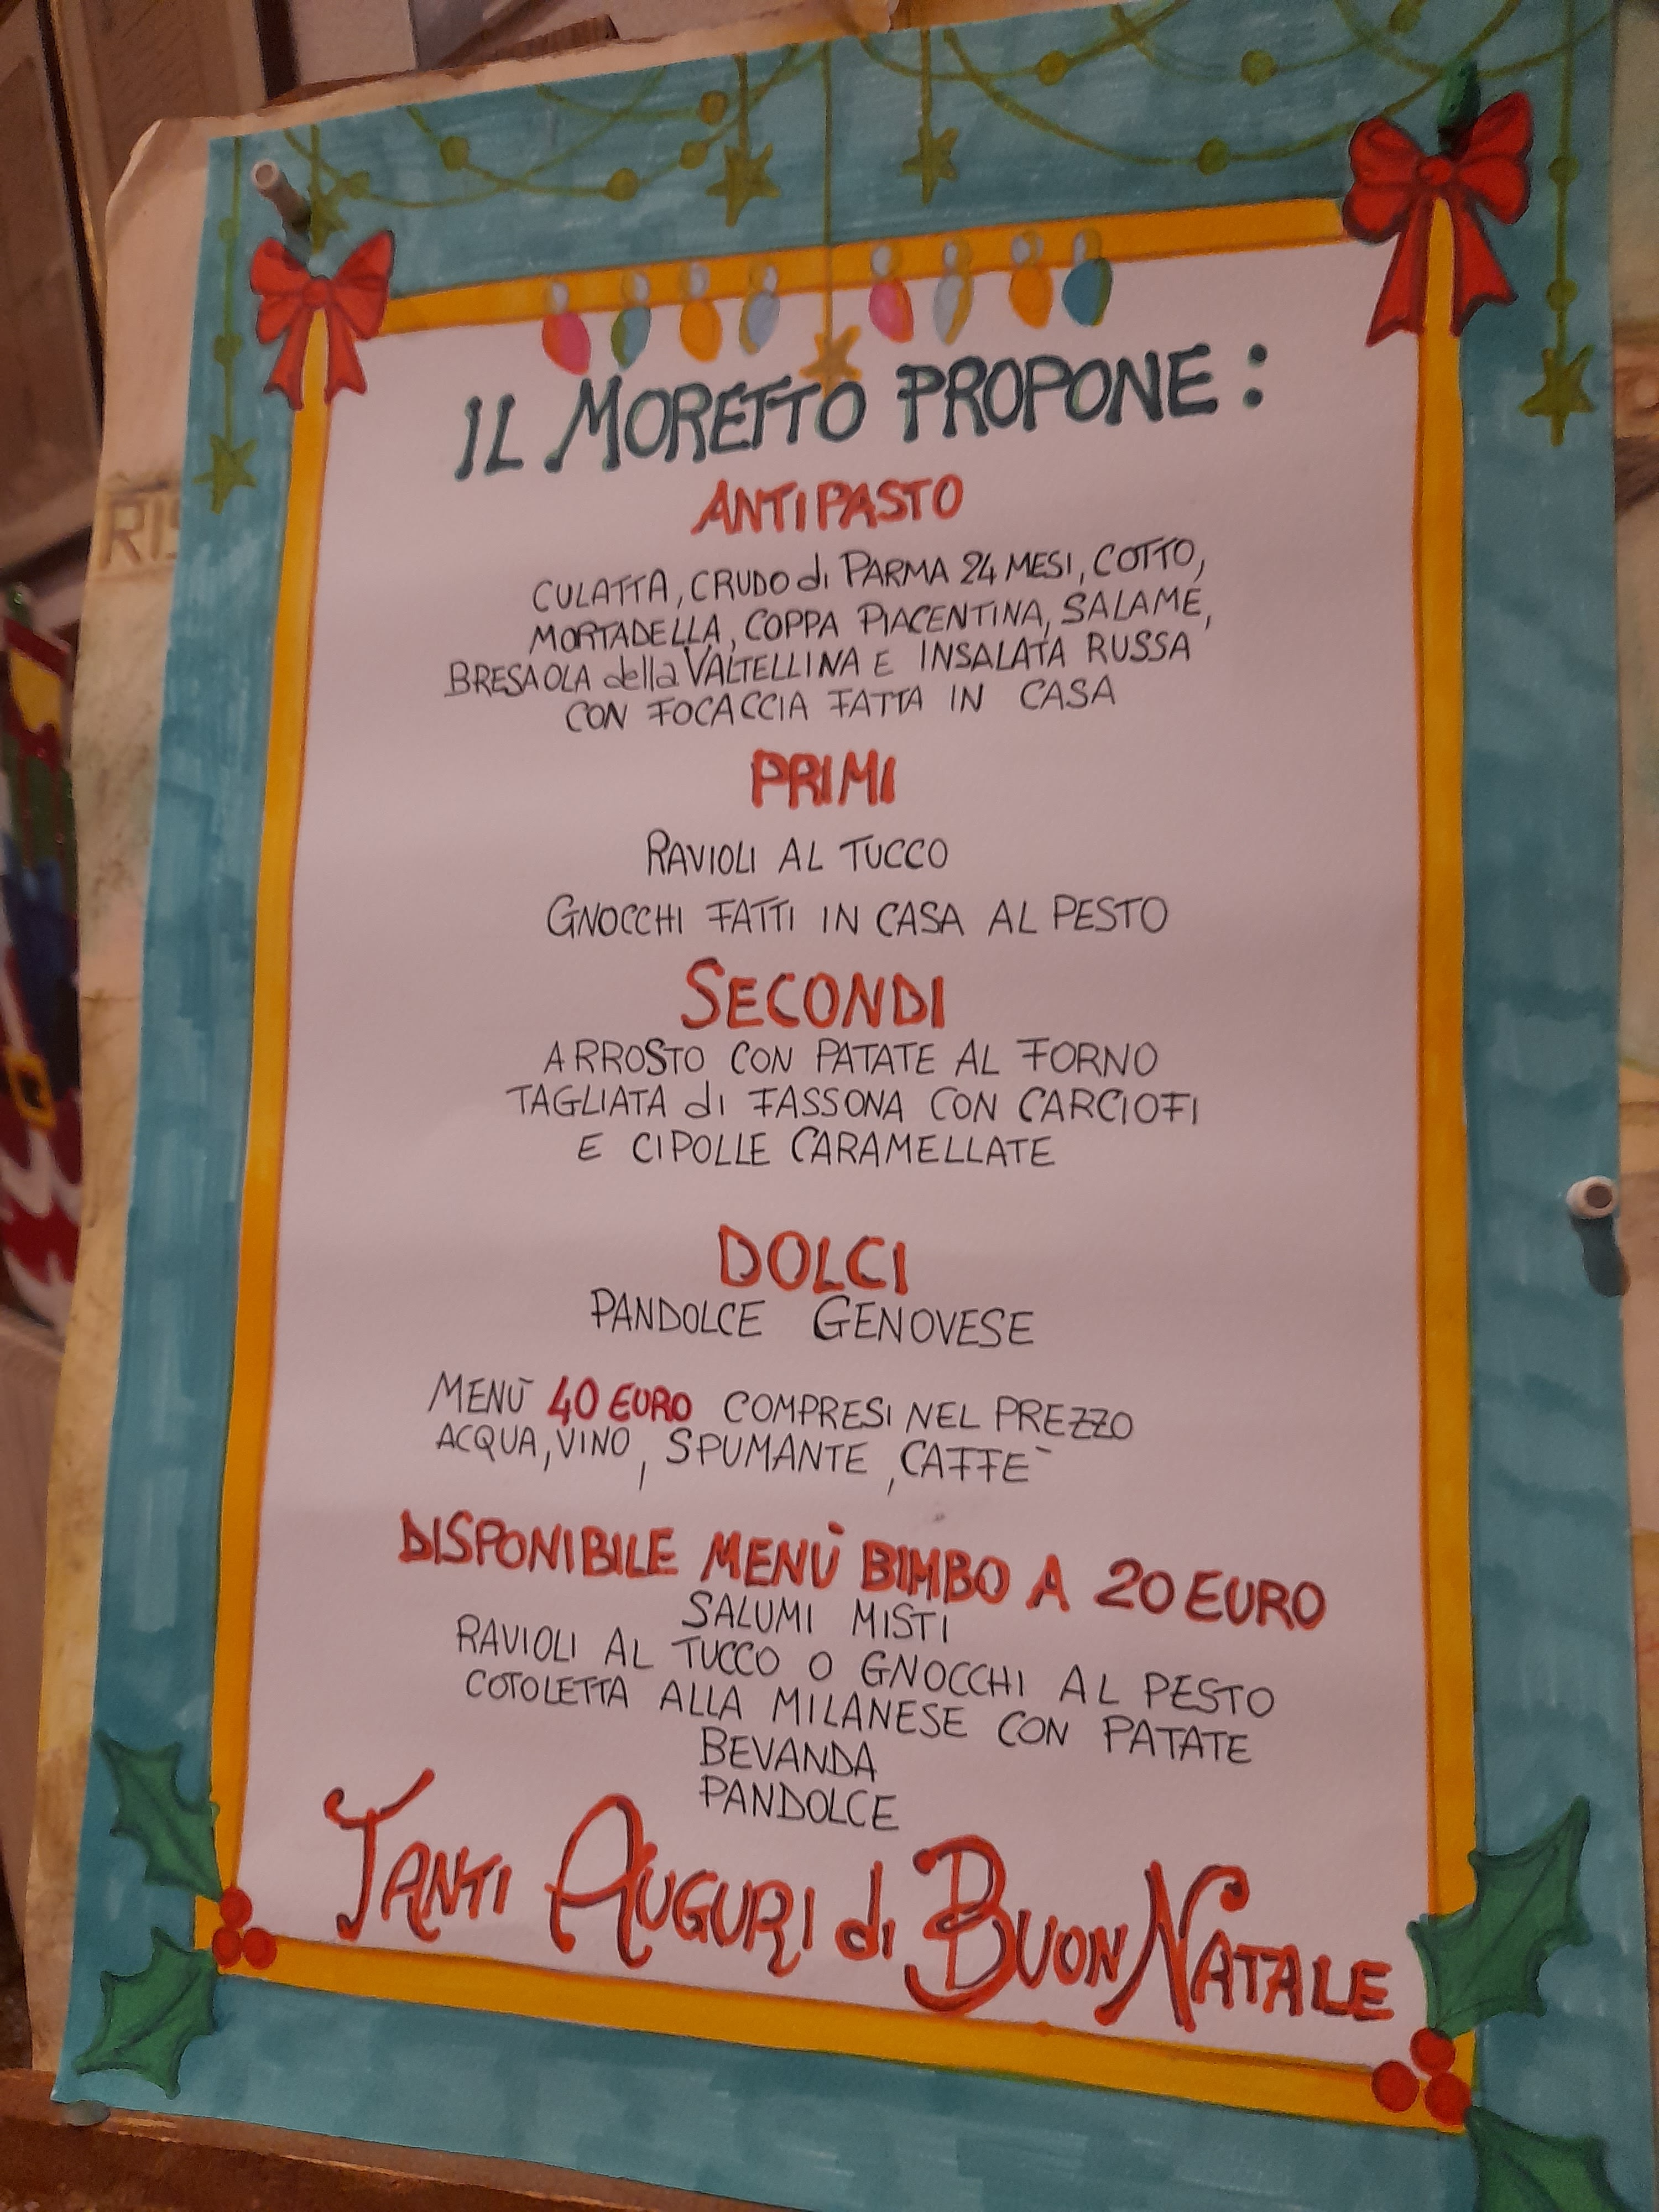 IL MORETTO PROPONE:
ANTIPASTO
CULATTA, CRUDO di PARMA 24 MESI, COTTO,
MORTADELLA, COPPA PIACENTINA, SALAME,
BRESAOLA della VALTELLINA E INSALATA RUSSA
CON FOCACCIA FATTA IN CASA
PRIMI
RAVIOLI AL TUCCO
GNOCCHI FATTI IN CASA AL PESTO
SECONDI
ARROSTO CON PATATE AL FORNO
TAGLIATA di FASSONA CON CARCIOFI
E CIPOLLE CARAMELLATE
DOLCI
PANDOLCE GENOVESE
MENÙ 40 EURO COMPRESI NEL PREZZO
ACQUA, VINO, SPUMANTE, CAFFÈ
DISPONIBILE MENÙ BIMBO A 20 EURO
SALUMI MISTI
RAVIOLI AL TUCCO O GNOCCHI AL PESTO
COTOLETTA ALLA MILANESE CON PATATE
BEVANDA
PANDOLCE
TANTI AUGURI di BUON NATALE